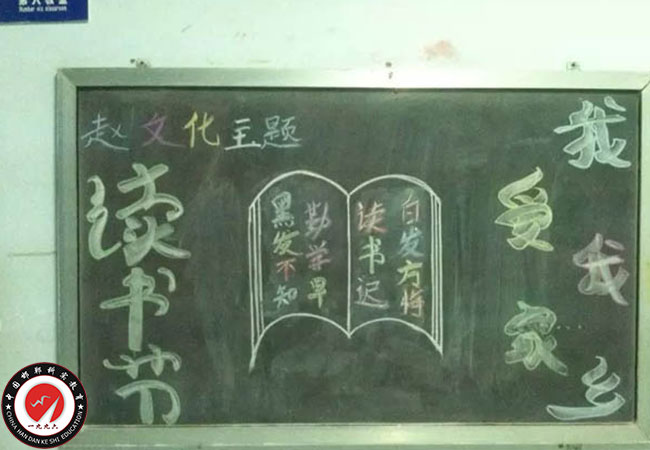 Number six classroom
赵文化主题
读书节
黑发不知
勤学早
白发方悔
读书迟
我爱我家乡
中国邯郸科实教育
一九九六
CHINA HAN DAN KE SHI EDUCATION